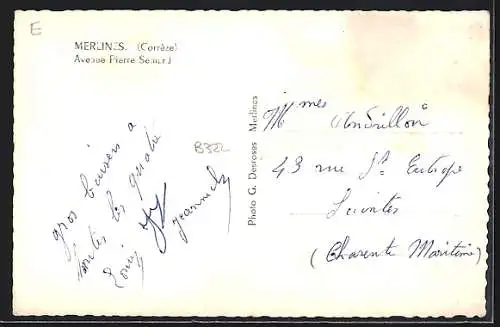 E
MERLINES. (Corrèze)
Avenue Pierre Semard
B322
gros baisers a
toutes les quatre
Jeannick
Photo G. Desroses Merlines
Mmes
43 rue St Eutrope
Saintes
(Charente Maritime)